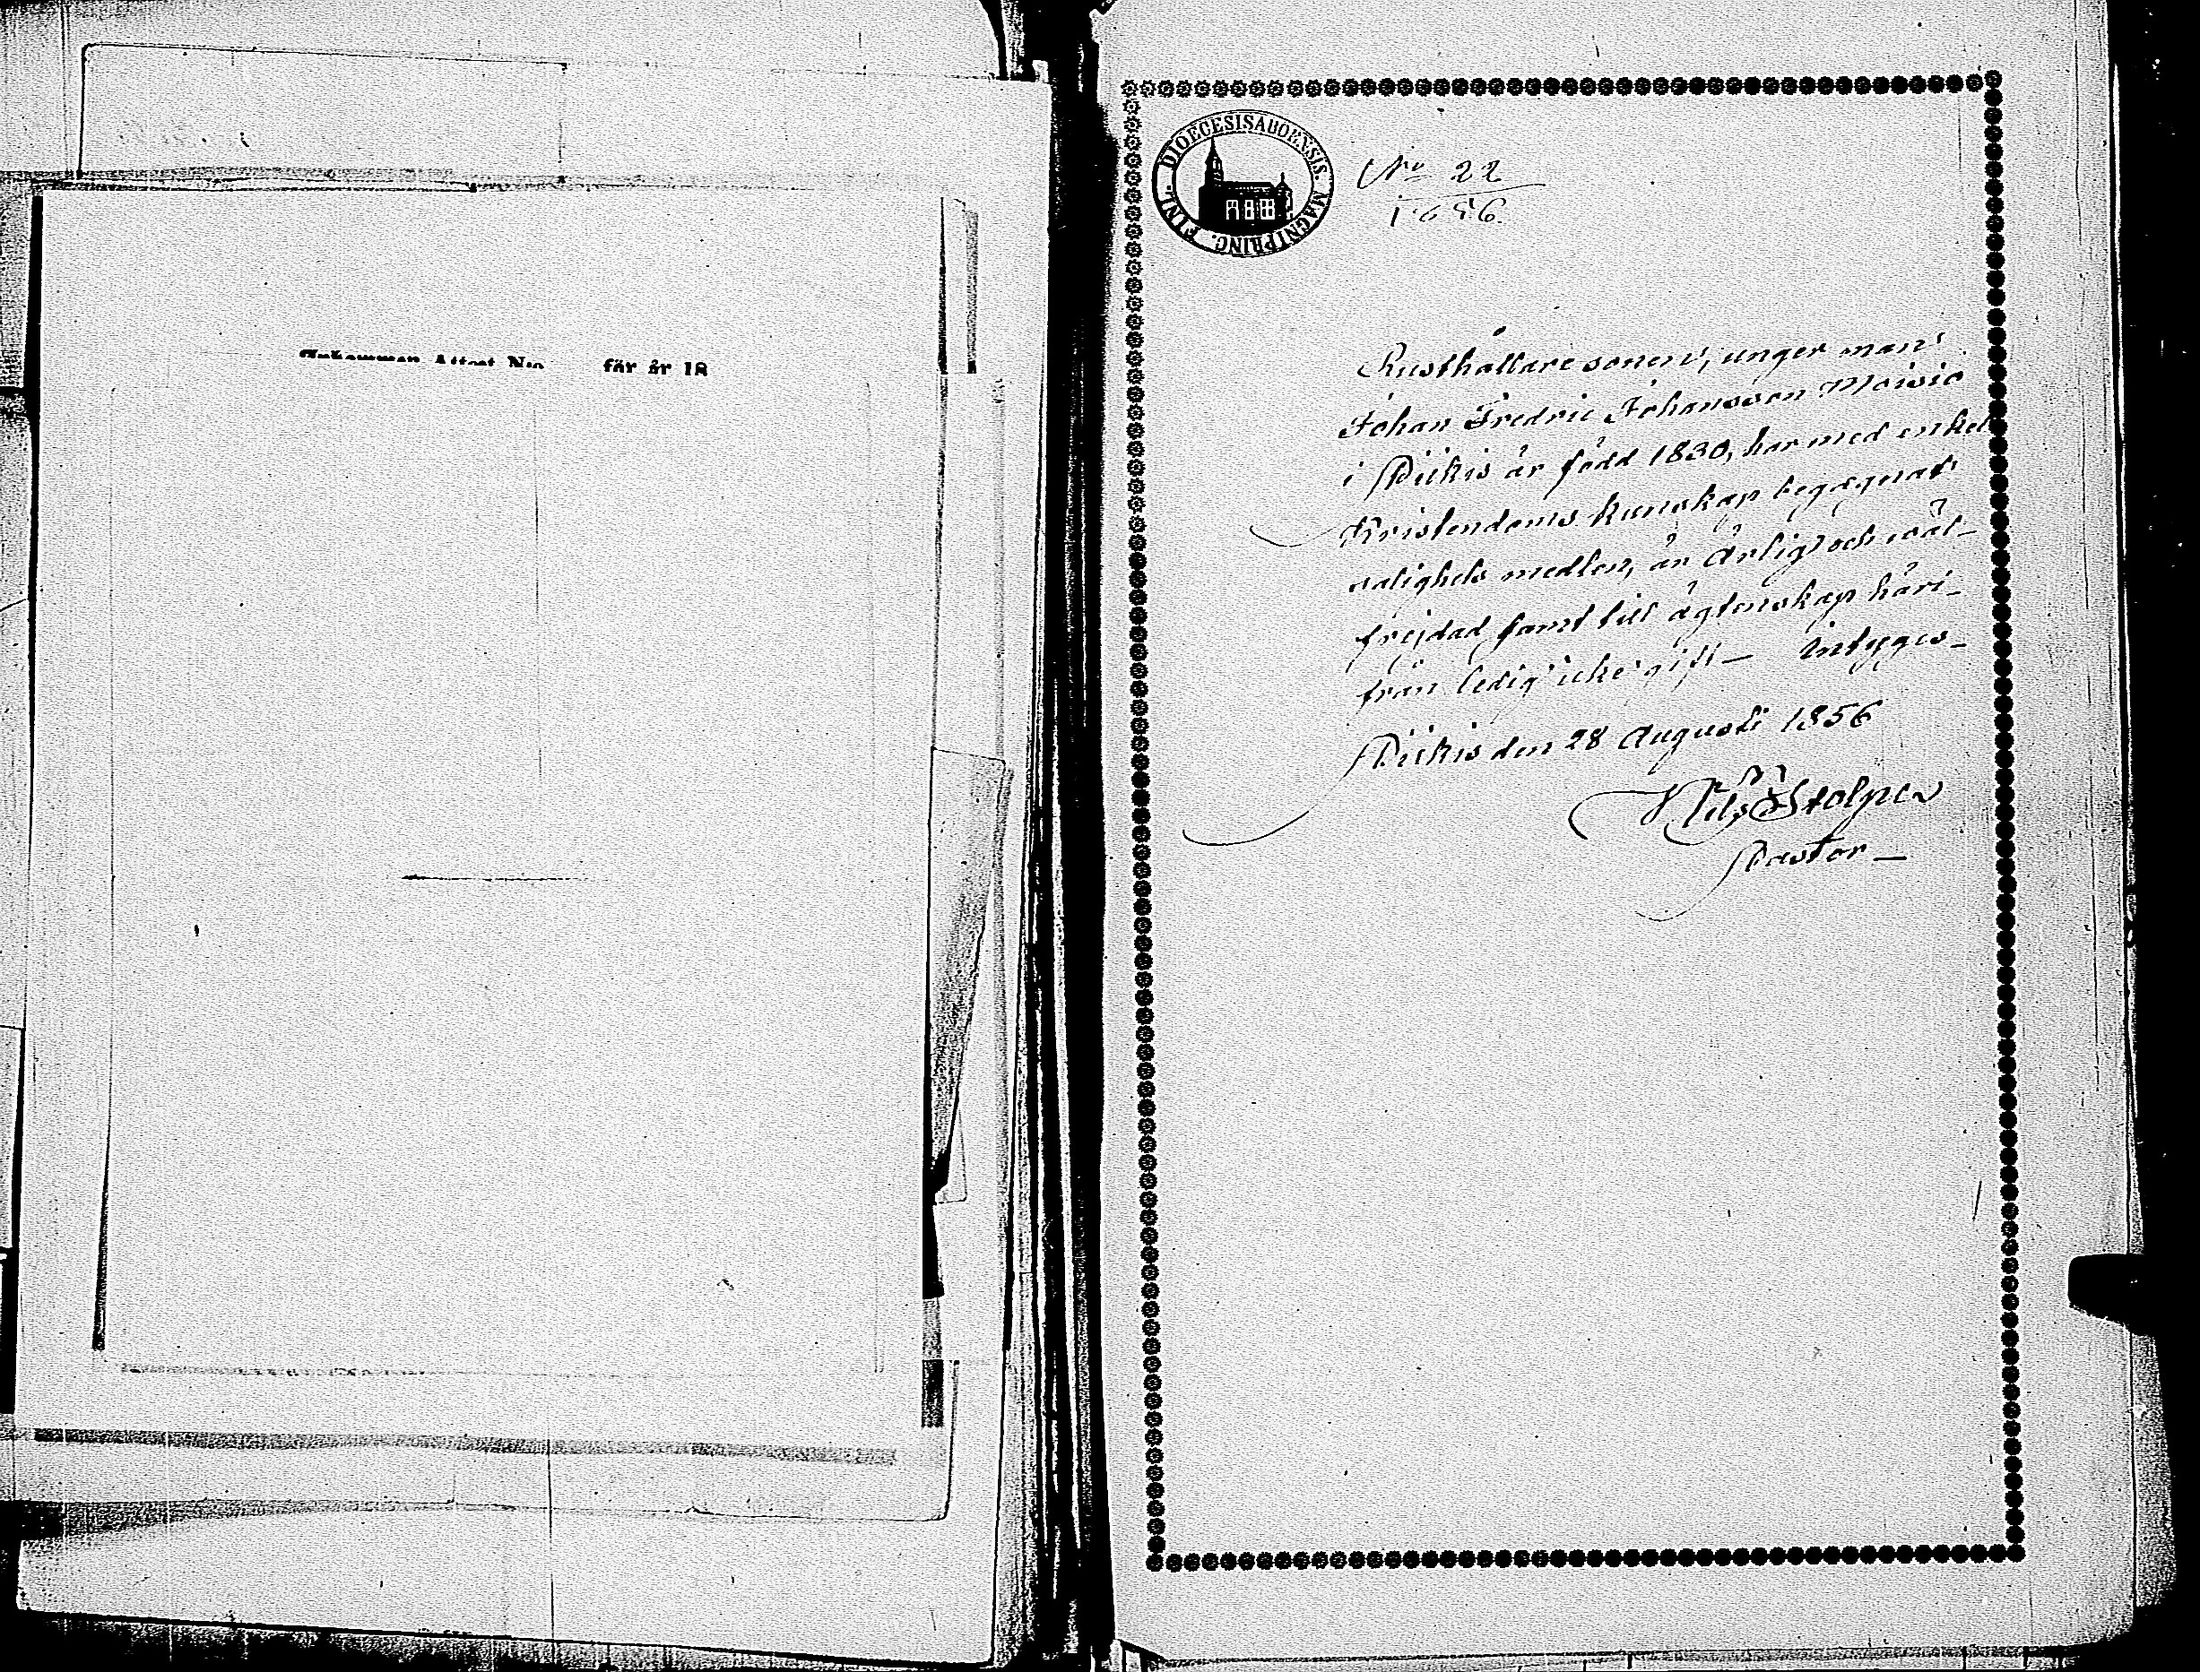 Inkommen Attest No för år 18
DIOECESIS ABOENSIS. MAGNI PRINC. FINL.
No 22
1856.
Rusthållare sonen, unger man
Johan Fredric Johansson Moisio
i Piikis är född 1830, har med enkel
Kristendoms kunskap begagnat
salighets medlen, är ärlig och väl-
frejdad samt till ägtenskap häri-
från ledig icke gift — intygas —
Piikis den 28 Augusti 1856
Nils Stolpe
Pastor —